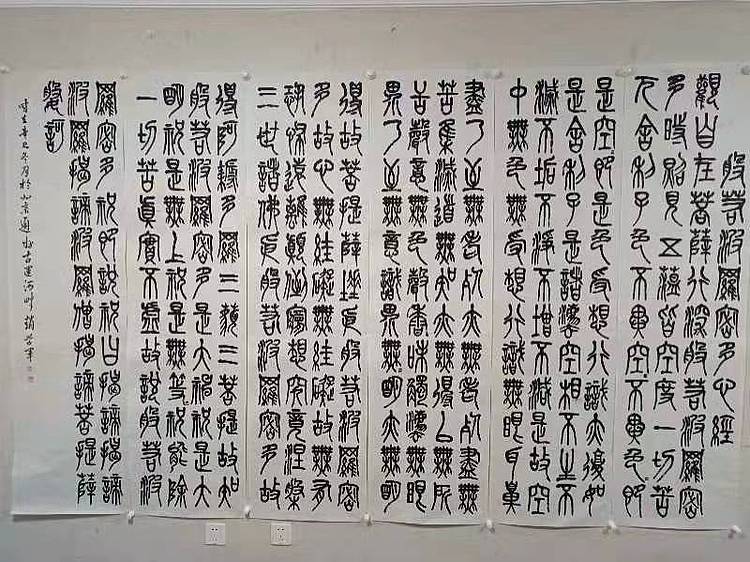 般若波羅密多心經
觀自在菩薩行深般若波羅密
多時照見五蘊皆空度一切苦
厄舍利子色不異空不異色即
是空即是色受想行識亦復如
是舍利子是諸法空相不生不
滅不垢不淨不增不減是故空
中無色無受想行識無眼耳鼻
盡乃至無老死亦無老死盡無
苦集滅道無知亦無得以無所
舌聲意無色聲香味觸法無眼
界乃至無意識界無明亦無明
得故菩提薩埵依般若波羅密
多故心無罣礙無罣礙故無有
恐怖遠離顛倒夢想究竟涅槃
三世諸佛依般若波羅密多故
得阿耨多羅三藐三菩提故知
般若波羅密多是大神咒是大
明咒是無上咒是無等咒能除
一切苦真實不虛故說般若波
羅密多咒即說咒曰揭諦揭諦
波羅揭諦波羅僧揭諦菩提薩
婆訶
時在辛冬月於北京通州古運河畔